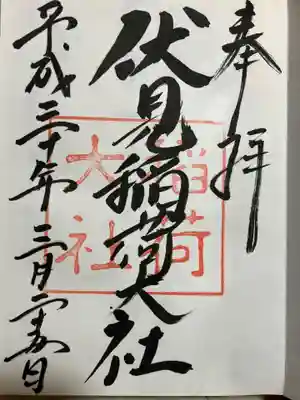 奉拝
伏見稲荷大社
平成三十年三月二十五日
稲荷
大社